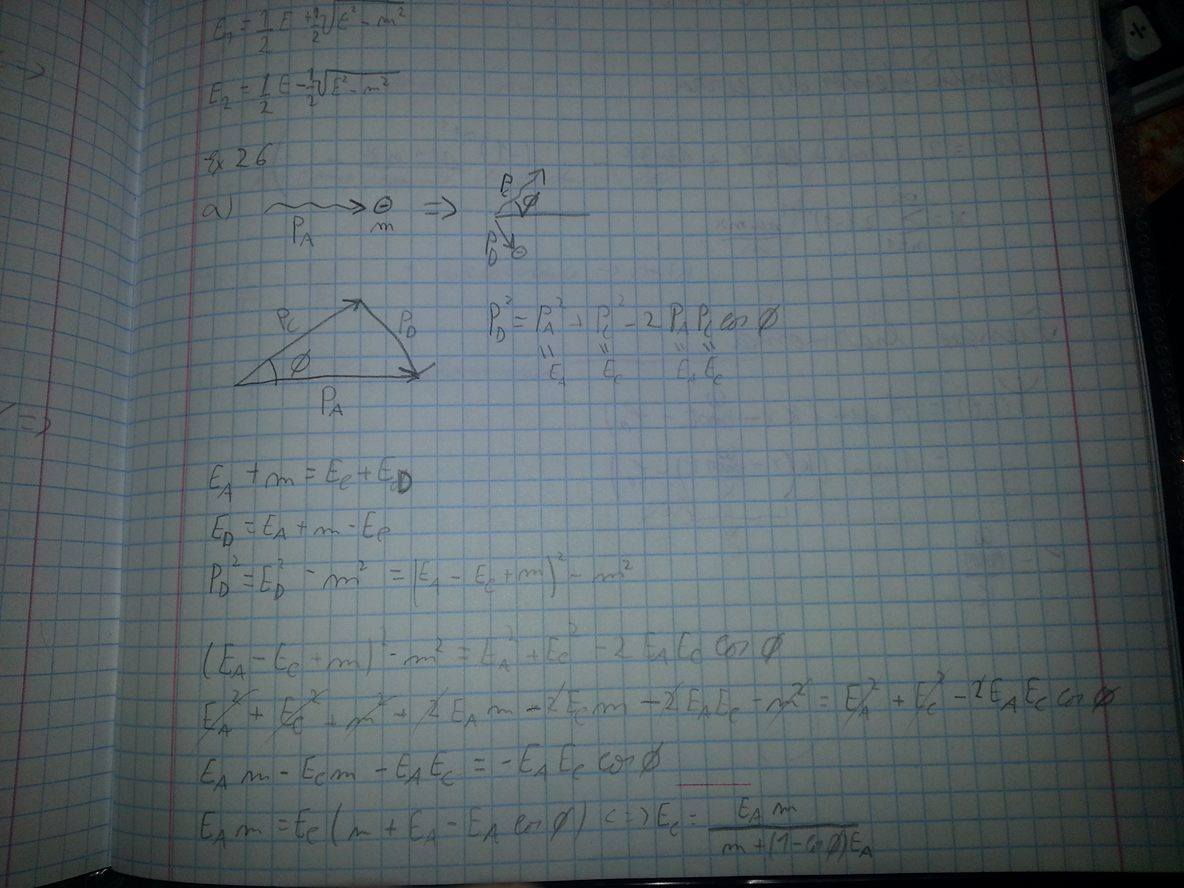 E₁ = 1/2 E + 1/2 √(E² - m²)
E₂ = 1/2 E - 1/2 √(E² - m²)
Ex 26
a) P_A m ⇒ P_C φ P_D
P_C P_D φ P_A
P_D² = P_A² + P_C² - 2 P_A P_C cos φ
= = = =
E_A² E_C² E_A E_C
E_A + m = E_C + E_D
E_D = E_A + m - E_C
P_D² = E_D² - m² = (E_A - E_C + m)² - m²
(E_A - E_C + m)² - m² = E_A² + E_C² - 2 E_A E_C cos φ
E_A² + E_C² + m² + 2 E_A m - 2 E_C m - 2 E_A E_C - m² = E_A² + E_C² - 2 E_A E_C cos φ
E_A m - E_C m - E_A E_C = - E_A E_C cos φ
E_A m = E_C (m + E_A - E_A cos φ) <=> E_C = E_A m / (m + (1 - cos φ) E_A)